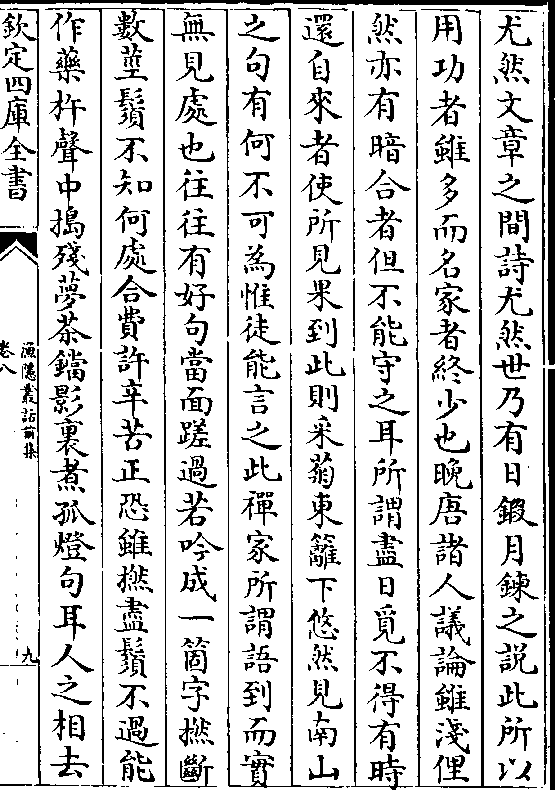 尤然文章之間詩尤然世乃有日鍜月鍊之説此所以
用功者雖多而名家者終少也晚唐諸人議論雖淺俚
然亦有暗合者但不能守之耳所謂盡日覓不得有時
還自來者使所見果到此則采菊東籬下悠然見南山
之句有何不可為惟徒能言之此禪家所謂語到而實
無見處也往往有好句當面蹉過若吟成一箇字撚斷
數莖鬚不知何處合費許辛苦正恐雖撚盡鬚不過能
作藥杵聲中搗殘夢茶鐺影裏煮孤燈句耳人之相去
欽定四庫全書
漁隱叢話前集
卷八
九